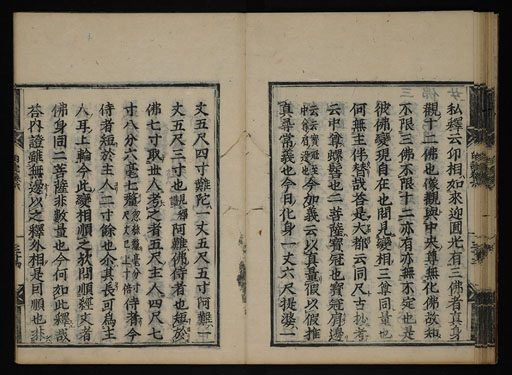 私釋云卯相如來迎圓光有三佛者真身
觀十二佛也像觀與中央尊無化佛故知
不限三佛不限十二亦有亦無不定也是
彼佛變現自在也問見變相三尊同量也
何無主伴替哉答是大都云同尺古抄者
云中尊螺髻也二菩薩寶冠也寶冠肩邊
云云今加義云以真量假以假推
真尋常義也今日化身一丈六尺提婆一
丈五尺四寸難陀一丈五尺五寸阿難一
丈五尺三寸也阿難佛侍者也短於
佛七寸取世人考之者五尺主人四尺七
寸八分六毫七釐侍者今
侍者短於主人二寸餘也企其長可爲主
人耳上輪今此變相順之歟問順經文者
佛身同二菩薩非數量也今何如此釋哉
答內證雖無邊以之釋外相是曰順也非